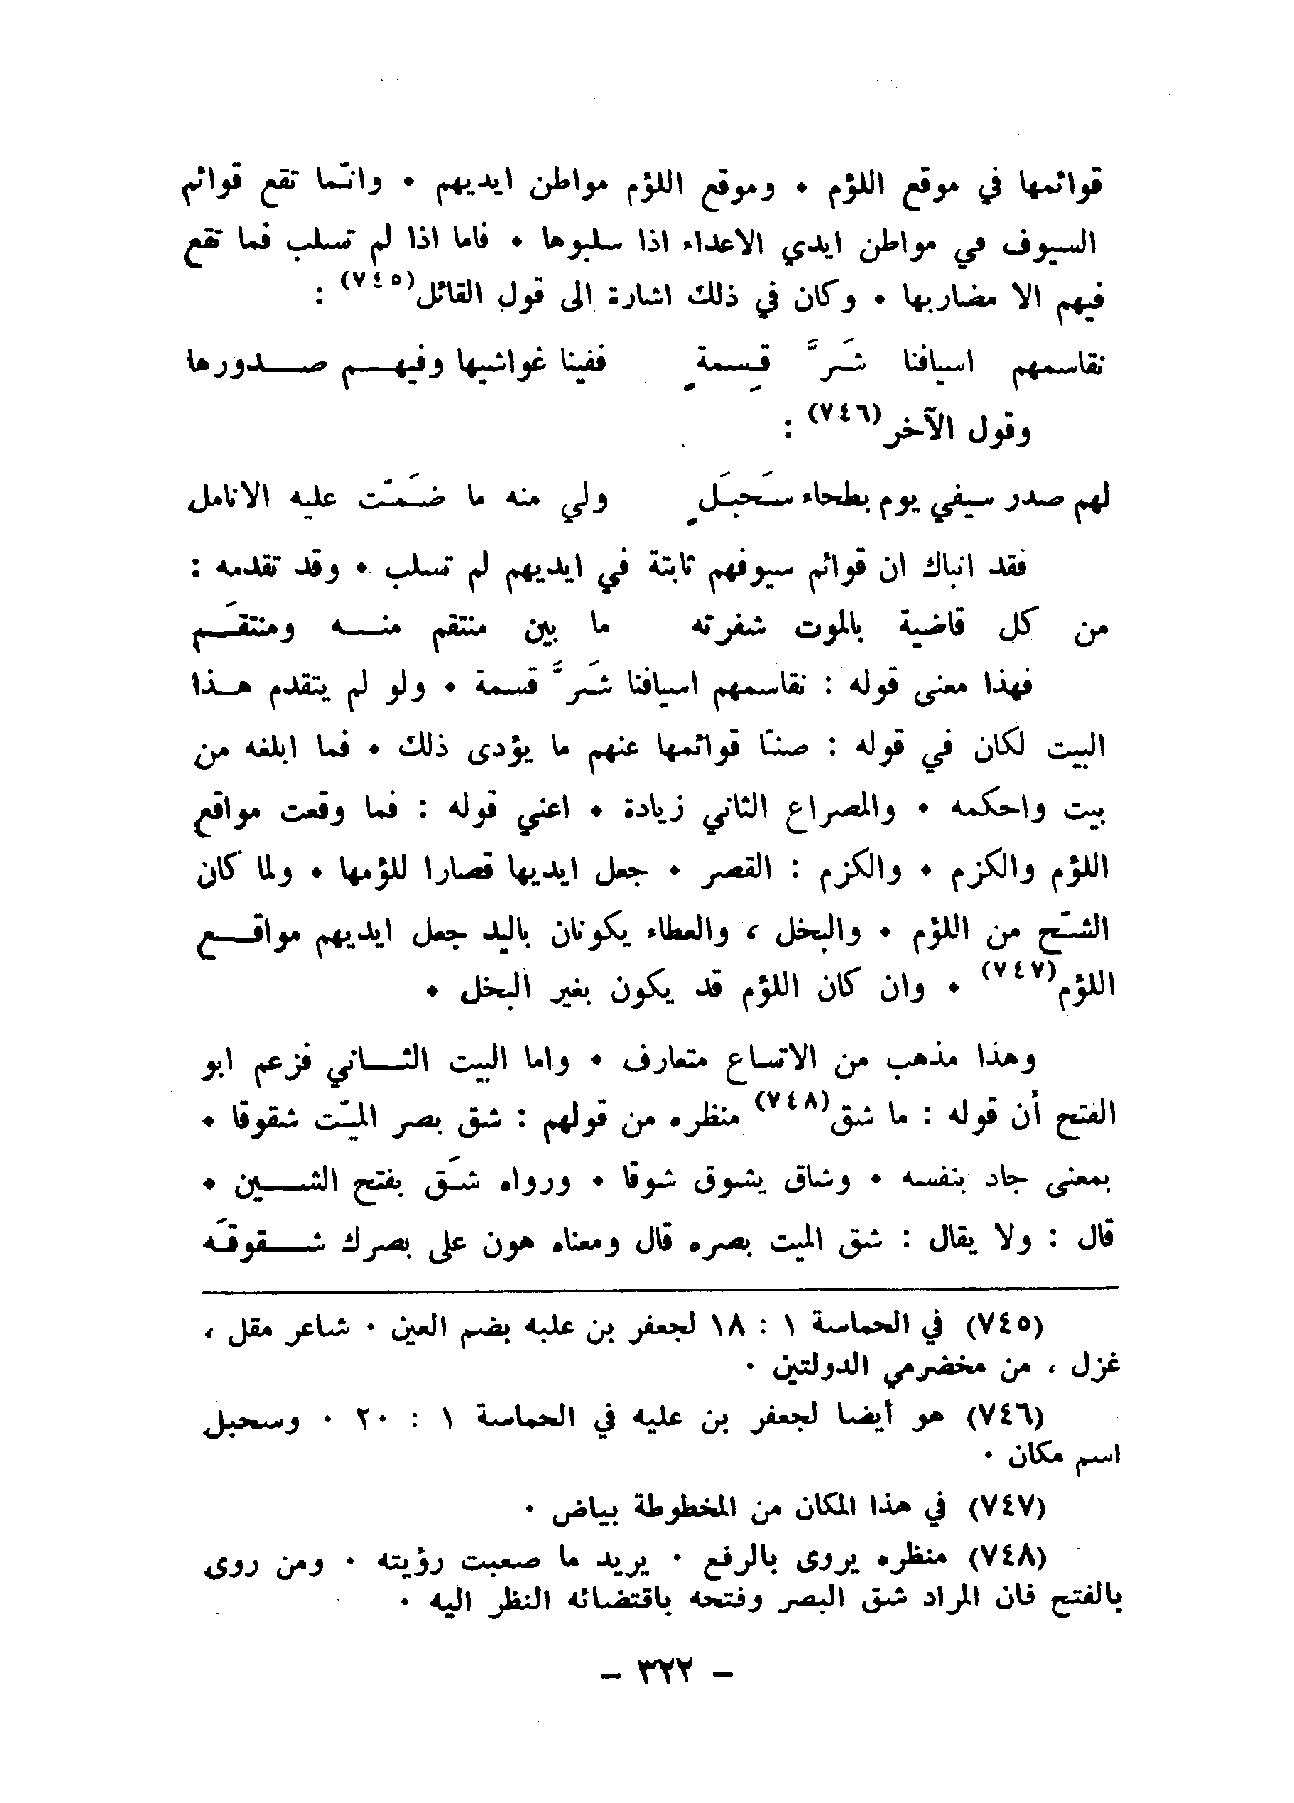 قوائمها في موقع اللؤم • وموقع اللؤم مواطن ايديهم • وانّما تقع قوائم
السيوف في مواطن ايدي الاعداء اذا سلبوها • فاما اذا لم تسلب فما تقع
فيهم الا مضاربها • وكان في ذلك اشارة الى قول القائل(٧٤٥) :
نقاسمهم اسيافنا شَرَّ قِسمةٍ ففينا غواشيها وفيهــم صــدورها
وقول الآخر(٧٤٦) :
لهم صدر سيفي يوم بطحاء سَحبَلٍ ولي منه ما ضَمّت عليه الانامل
فقد انباك ان قوائم سيوفهم ثابتة في ايديهم لم تسلب • وقد تقدمه :
من كل قاضية بالموت شفرته ما بين منتقم منــه ومنتقَــم
فهذا معنى قوله : نقاسمهم اسيافنا شَرَّ قسمة • ولو لم يتقدم هــذا
البيت لكان في قوله : صنّا قوائمها عنهم ما يؤدى ذلك • فما ابلغه من
بيت واحكمه • والمصراع الثاني زيادة • اعني قوله : فما وقعت مواقع
اللؤم والكزم • والكزم : القصر • جعل ايديها قصارا للؤمها • ولما كان
الشّح من اللؤم • والبخل ، والعطاء يكونان باليد جعل ايديهم مواقــع
اللؤم(٧٤٧) • وان كان اللؤم قد يكون بغير البخل •
وهذا مذهب من الاتساع متعارف • واما البيت الثــاني فزعم ابو
الفتح أن قوله : ما شق(٧٤٨) منظره من قولهم : شق بصر الميّت شقوقا •
بمعنى جاد بنفسه • وشاق يشوق شوقا • ورواه شَق بفتح الشــين •
قال : ولا يقال : شق الميت بصره قال ومعناه هون على بصرك شــقوقَه
(٧٤٥) في الحماسة ١ : ١٨ لجعفر بن علبه بضم العين • شاعر مقل ،
غزل ، من مخضرمي الدولتين •
(٧٤٦) هو أيضا لجعفر بن عليه في الحماسة ١ : ٢٠ • وسحبل
اسم مكان •
(٧٤٧) في هذا المكان من المخطوطة بياض •
(٧٤٨) منظره يروى بالرفع • يريد ما صعبت رؤيته • ومن روى
بالفتح فان المراد شق البصر وفتحه باقتضائه النظر اليه •
– ٣٢٢ –